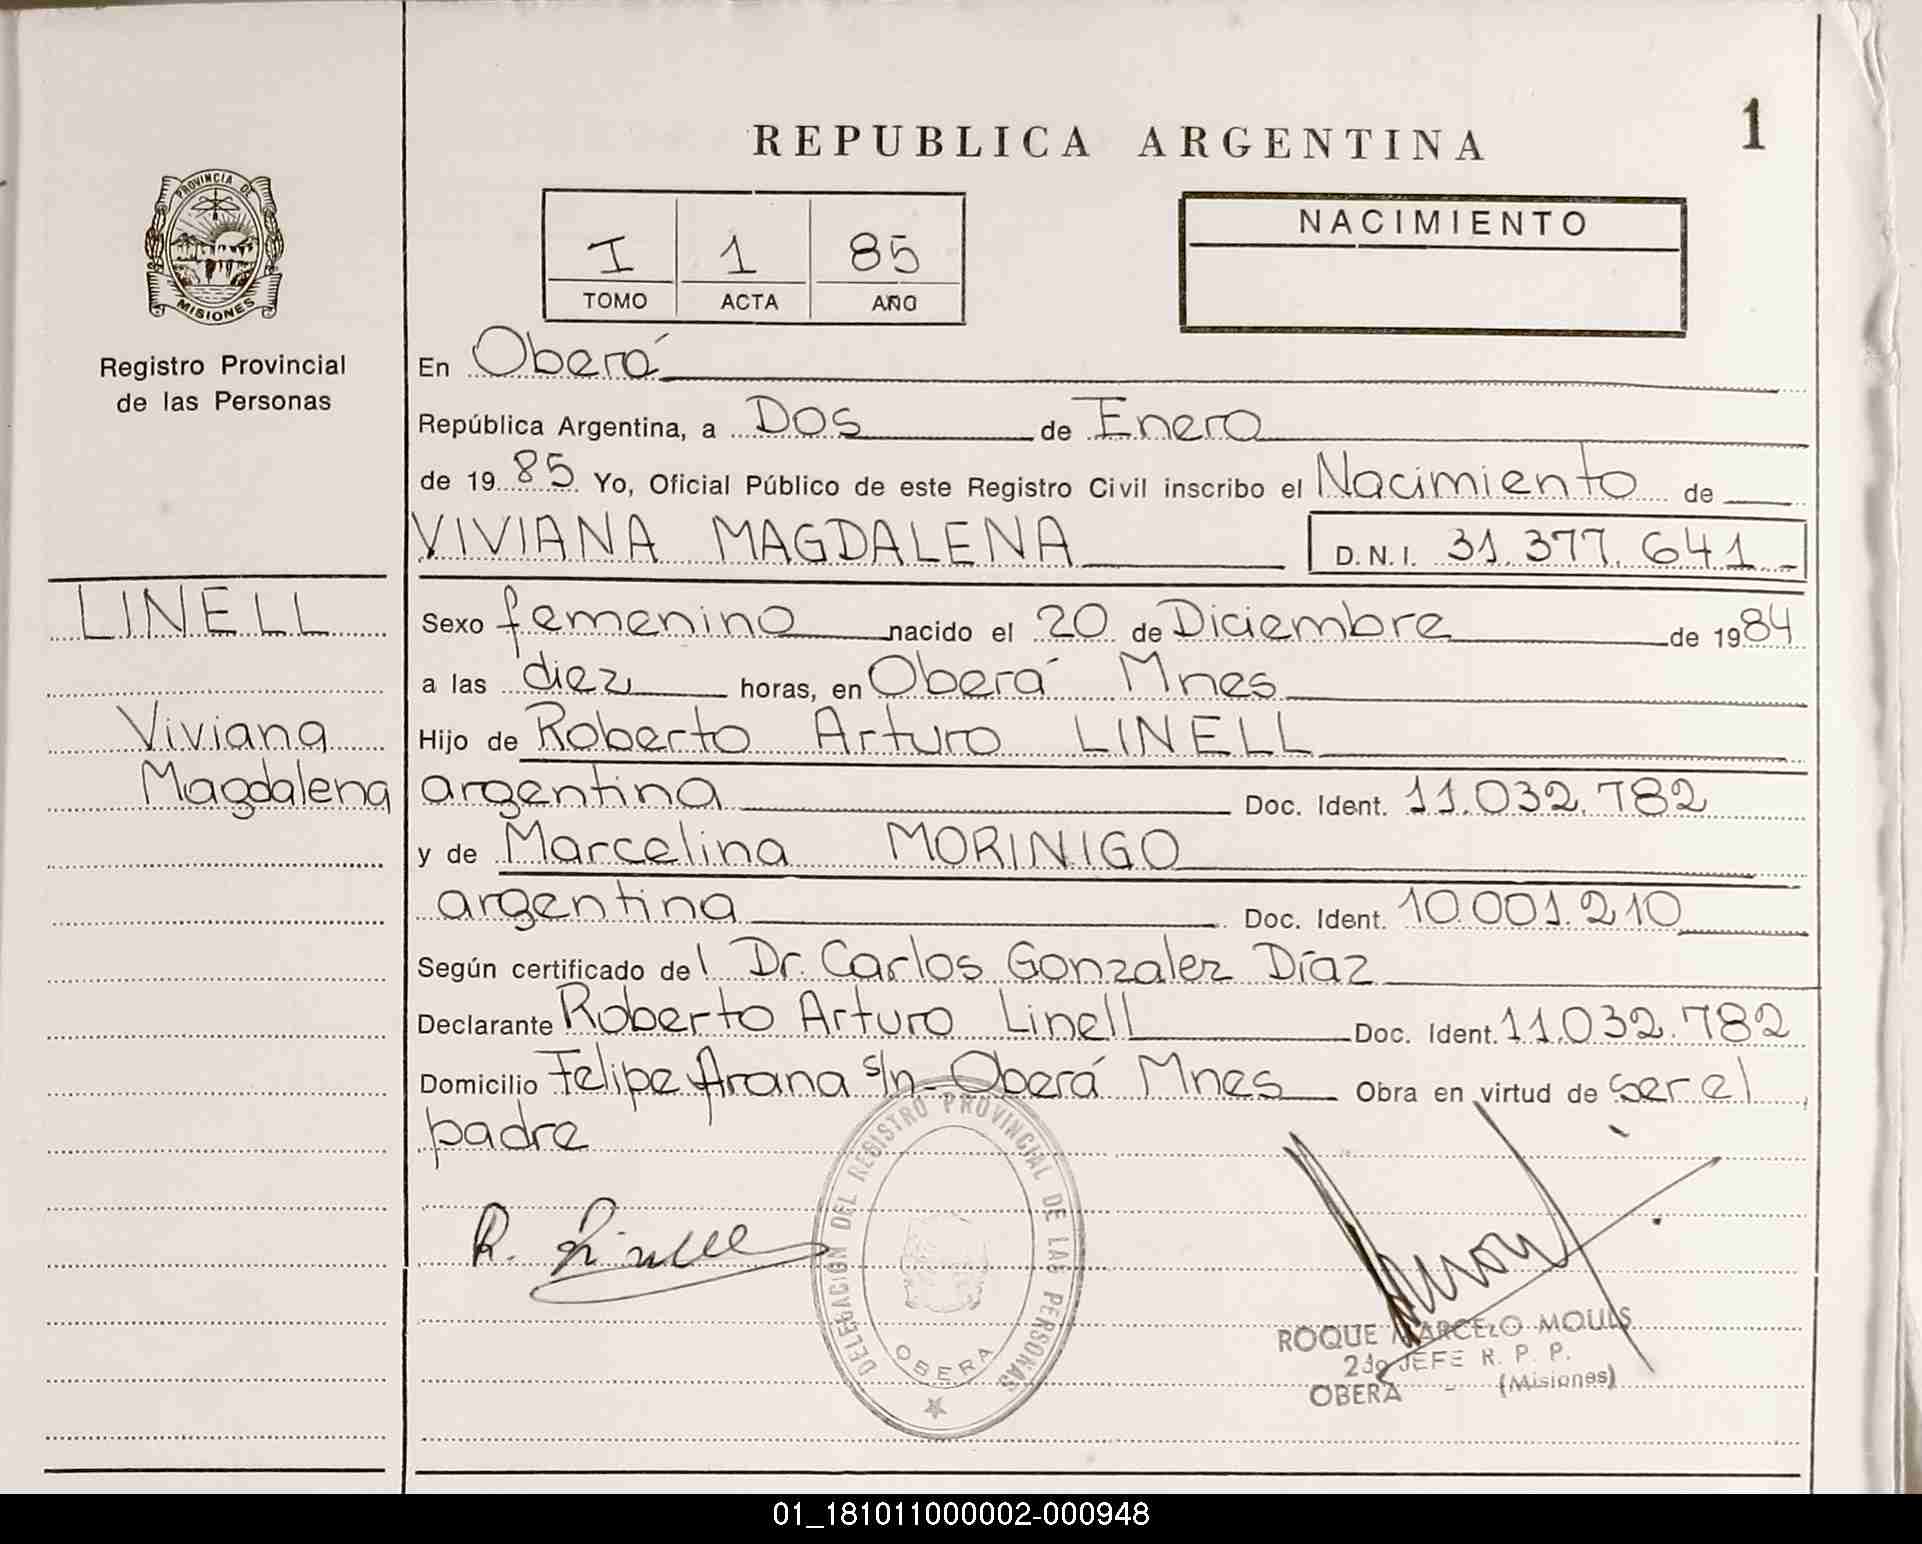 1
REPUBLICA ARGENTINA
PROVINCIA DE
MISIONES
Registro Provincial
de las Personas
I 1 85
TOMO ACTA AÑO
NACIMIENTO
En Oberá
República Argentina, a Dos de Enero
de 1985 Yo, Oficial Público de este Registro Civil inscribo el Nacimiento de
VIVIANA MAGDALENA D.N.I. 31.377.641
LINELL
Viviana
Magdalena
Sexo femenino nacido el 20 de Diciembre de 1984
a las diez horas, en Oberá Mnes
Hijo de Roberto Arturo LINELL
argentina Doc. Ident. 11.032.782
y de Marcelina MORINIGO
argentina Doc. Ident. 10.001.210
Según certificado del Dr. Carlos Gonzalez Díaz
Declarante Roberto Arturo Linell Doc. Ident. 11.032.782
Domicilio Felipe Arana s/n - Oberá Mnes Obra en virtud de ser el
padre
R. Linell
DELEGACION DEL REGISTRO PROVINCIAL DE LAS PERSONAS
OBERA
ROQUE MARCELO MOULS
2do JEFE R. P. P.
OBERA - (Misiones)
01_181011000002-000948